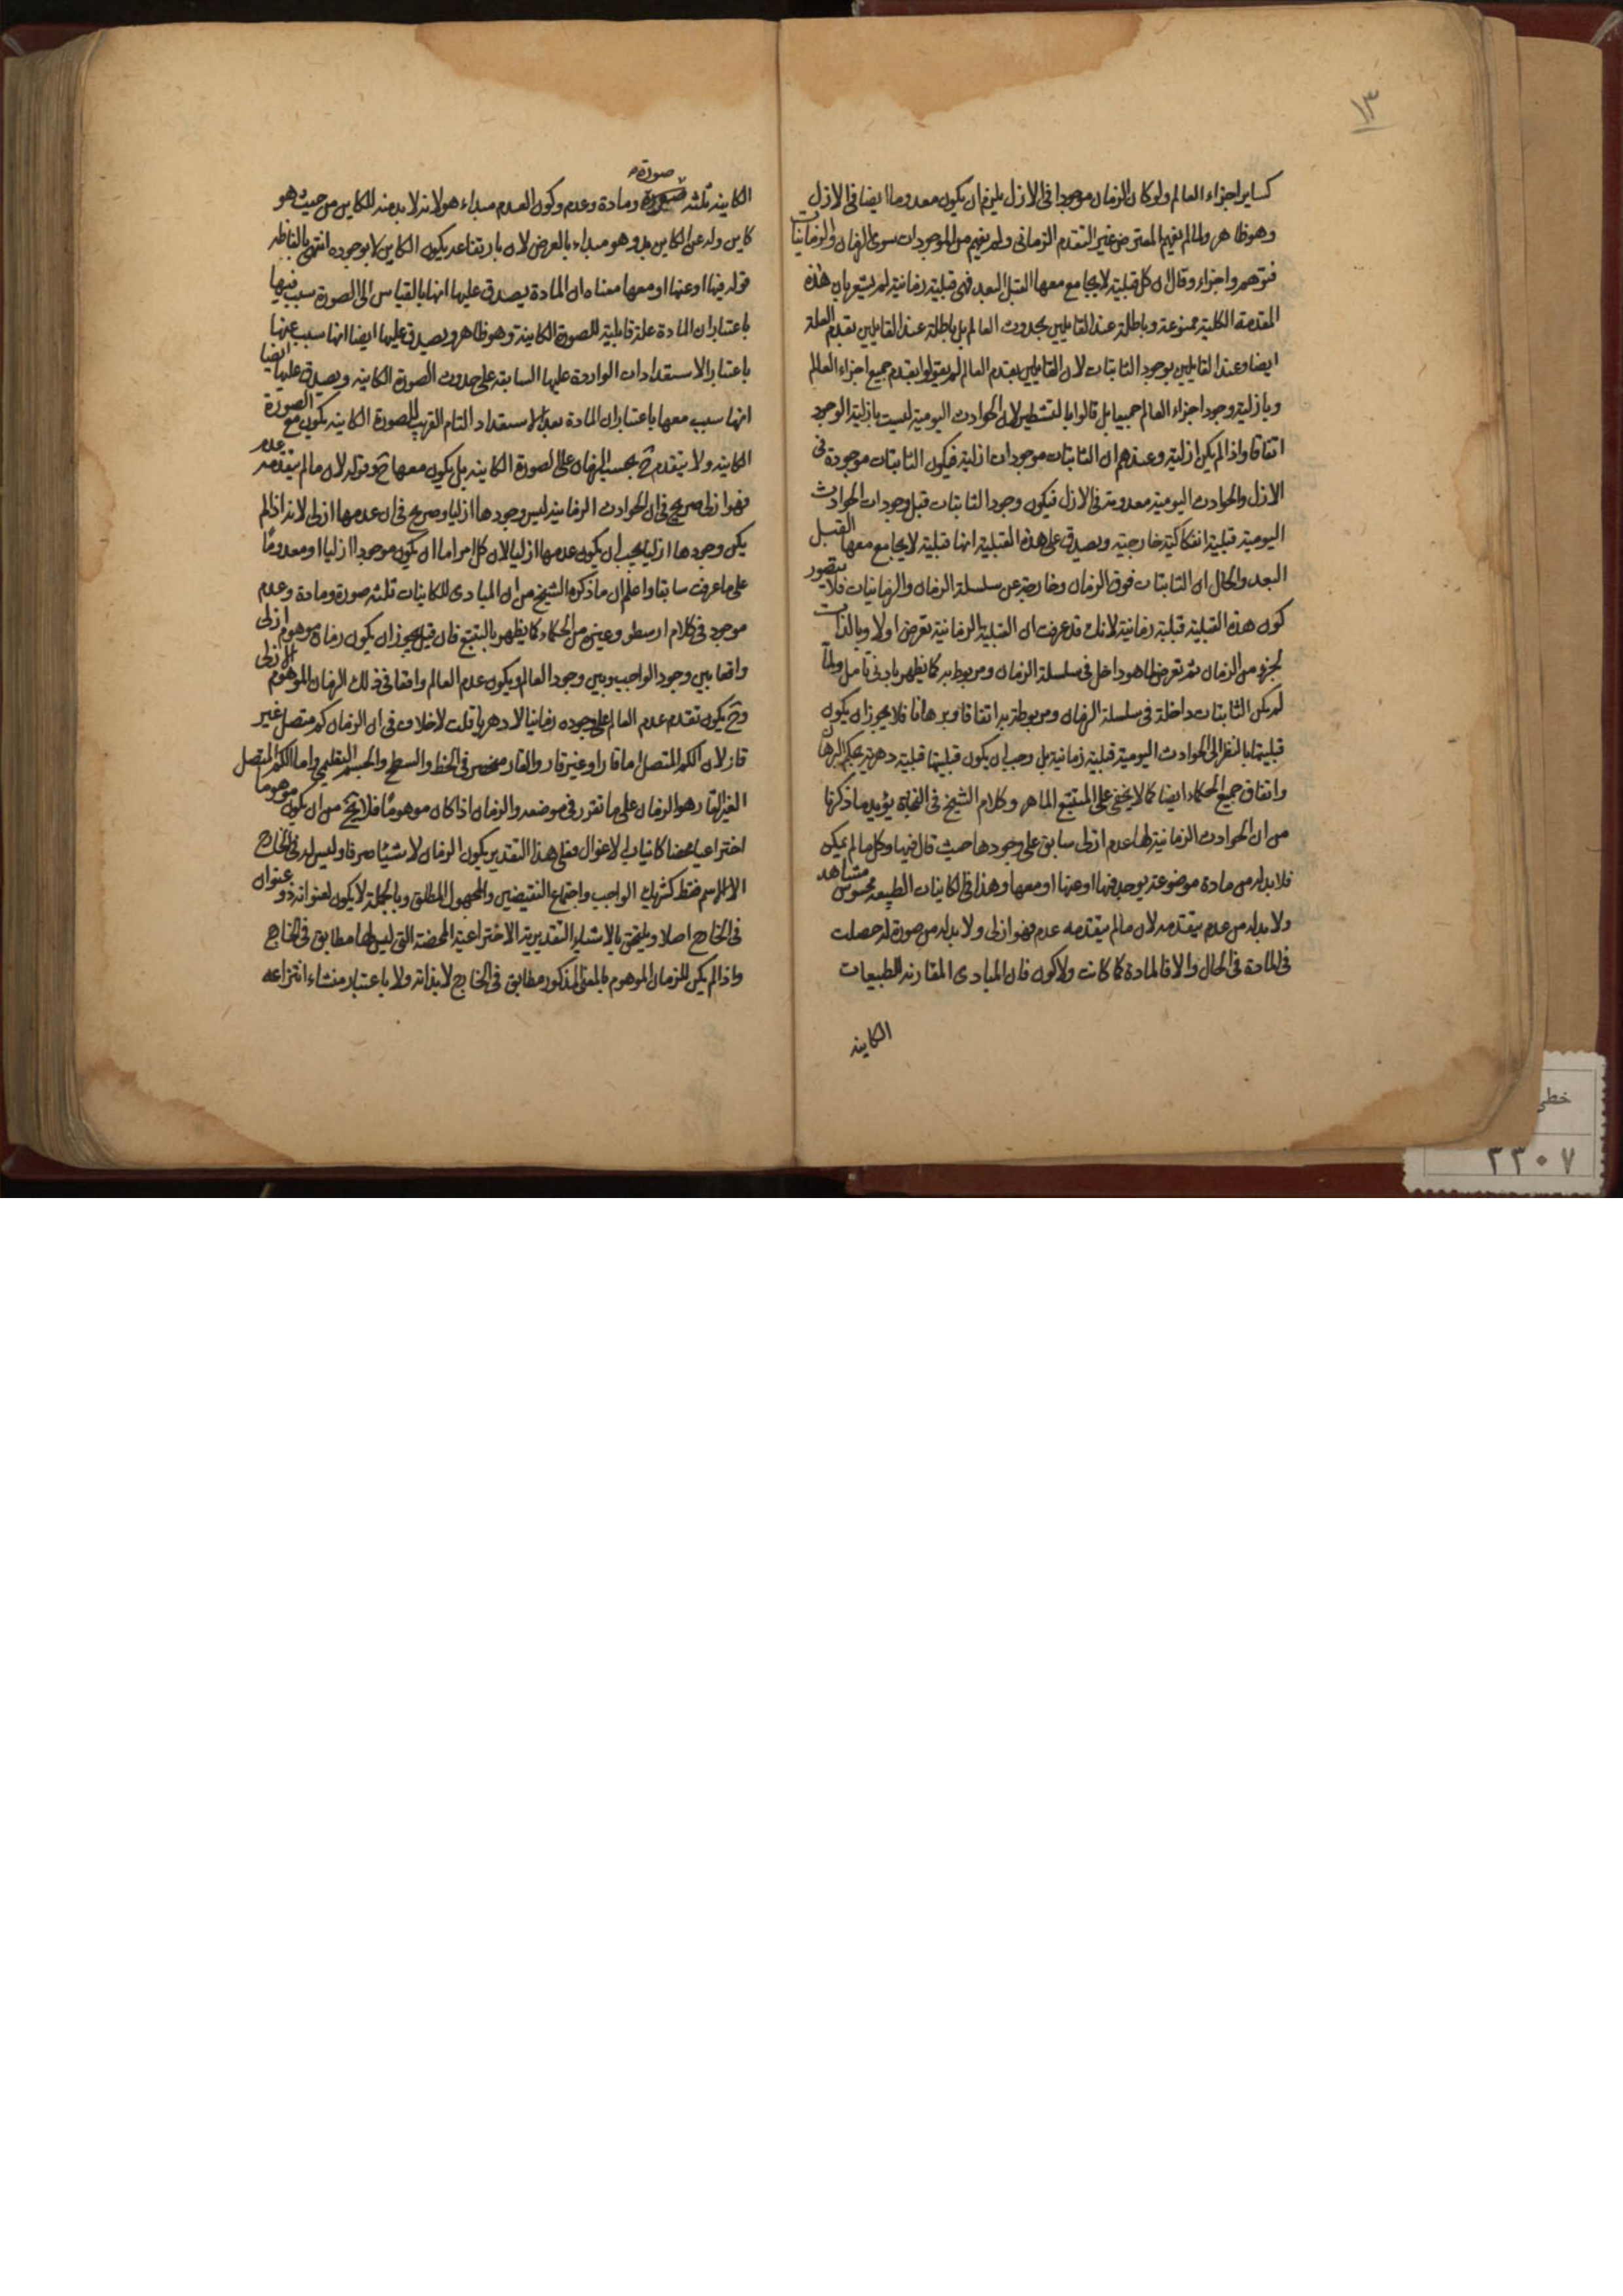 ١٣
كساير اجزاء العالم ولو كان الزمان موجودا فى الازل يلزم ان يكون معدوما ايضا فى الازل
وهو ظاهر ولما لم يفهم المعترض غير التقدم الزمانى ولم يفهم من الموجودات سوى الزمان والزمانيات
فتوهم واجزاء وقال ان كل قبلية لا يجامع معها القبل البعد فهى قبلية زمانية لم يشعر بان هذه
المقدمة الكلية ممنوعة وباطلة عند القايلين بحدوث العالم بل باطلة عند القايلين بقدم العلة
ايضا وعند القايلين بوجود الثابتات لان القايلين بقدم العالم لم يقولوا بقدم جميع اجزاء العالم
وبازلية وجود اجزاء العالم جميعا بل قالوا بالتشطير لان الحوادث اليومية ليست بازلية الوجود
اتفاقا واذا لم يكن ازلية وعندهم ان الثابتات موجودات ازلية فيكون الثابتات موجودة فى
الازل والحوادث اليومية معدومة فى الازل فيكون وجود الثابتات قبل وجودات الحوادث
اليومية قبلية انفكاكية خارجية ويصدق على هذه القبلية انها قبلية لا يجامع معها القبل
البعد والحال ان الثابتات فوق الزمان وخارجة عن سلسلة الزمان والزمانيات فلا يتصور
كون هذه القبلية قبلية زمانية لانك قد عرفت ان القبلية الزمانية تعرض اولا وبالذات
لجزء من الزمان ثم تعرض لما هو داخل فى سلسلة الزمان ومربوط به كما يظهر بادنى تامل ولما
لم يكن الثابتات داخلة فى سلسلة الزمان ومربوطة به اتفاقا وبرهانا فلا يجوز ان يكون
قبليتها بالنظر الى الحوادث اليومية قبلية زمانية بل وجب ان يكون قبليتها قبلية دهرية بحكم البرهان
واتفاق جميع الحكماء ايضا كما لا يخفى على المتتبع الماهر وكلام الشيخ فى النجاة يؤيد ما ذكرنا
من ان الحوادث الزمانية لها عدم ازلى سابق على وجودها حيث قال فيها وكل ما لم يكن
فلا بد له من مادة موضوعة يوجد فيها او عنها او معها وهذا فى الكاينات الطبيعية محسوس مشاهد
ولا بد له من عدم يتقدمه لان ما لم يتقدمه عدم فهو ازلى ولا بد له من صورة له حصلت
فى المادة فى الحال والا فالمادة كما كانت ولا كون فان المبادى المقارنة للطبيعات
الكاينة
الكاينة ثلثه صورة ومادة وعدم وكون العدم مبداء هو لانه لا بد منه للكاين من حيث هو
كاين وله عن الكاين بد وهو مبداء بالعرض لان بارتفاعه يكون الكاين لا بوجوده انتهى بالفاظه
قوله فيها او عنها او معها معناه ان المادة يصدق عليها انها بالقياس الى الصورة سبب فيها
باعتبار ان المادة علة قابلية للصورة الكاينة وهو ظاهر ويصدق عليها ايضا انها سبب عنها
باعتبار الاستعدادات الواردة عليها السابقة على حدوث الصورة الكاينة ويصدق عليها ايضا
انها سبب معها باعتبار ان المادة بعد الاستعداد التام القريب للصورة الكاينة يكون مع الصورة
الكاينة ولا يتقدم ح بحسب الزمان على الصورة الكاينة بل يكون معها ح وقوله لان ما لم يتقدمه عدم
فهو ازلى صريح فى ان الحوادث الزمانية ليس وجودها ازليا وصريح فى ان عدمها ازلى لانه اذا لم
يكن وجودها ازليا يجب ان يكون عدمها ازليا لان كل امر اما ان يكون موجودا ازليا او معدوما
على ما عرفت سابقا واعلم ان ما ذكره الشيخ من ان المبادى للكاينات ثلثه صورة ومادة وعدم
موجود فى كلام ارسطو وغيره من الحكماء كما يظهر بالتتبع فان قيل يجوز ان يكون زمان موهوم ازلى
واقعا بين وجود الواجب وبين وجود العالم ويكون عدم العالم واقعا فى ذلك الزمان الموهوم الازلى
وح يكون تقدم عدم العالم على وجوده زمانيا لا دهريا قلت لا خلاف فى ان الزمان كم متصل غير
قار لان الكم المتصل اما قار او غير قار والقار منحصر فى الخط والسطح والجسم التعليمى واما الكم المتصل
الغير القار هو الزمان على ما تقرر فى موضعه والزمان اذا كان موهوما فلا يخ من ان يكون موهوما
اختراعيا محضا كانياب الاغوال فعلى هذا التقدير يكون الزمان لا شيئا صرفا وليس له فى الخارج
الا الاسم فقط كشريك الواجب واجتماع النقيضين والمجهول المطلق وبالجملة لا يكون لعنوانه ذو عنوان
فى الخارج اصلا ويلحق بالاشياء التقديرية الاختراعية المحضة التى ليس لها مطابق فى الخارج
واذا لم يكن للزمان الموهوم بالمعنى المذكور مطابق فى الخارج لا بذاته ولا باعتبار منشاء انتزاعه
خطى
٢٣٠٧